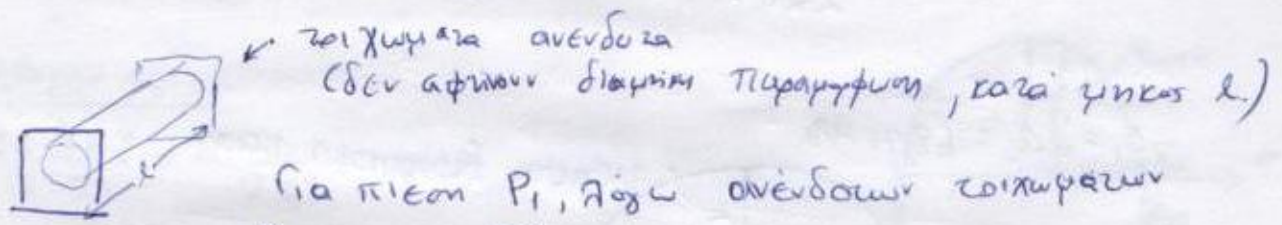 τοιχώματα ανένδοτα
(δεν αφήνουν διαμήκη παραμόρφωση, κατά μήκος l.)
l
Για πίεση P₁, λόγω ανένδοτων τοιχωμάτων